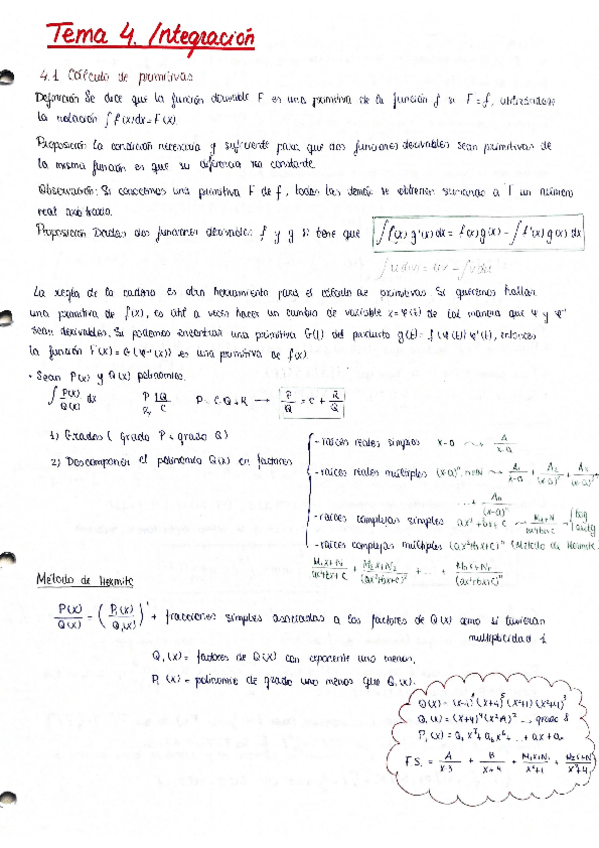 Tema 4. Integración
4.1 Cálculo de primitivas
Definición Se dice que la función derivable F es una primitiva de la función f si F' = f, utilizándose
la notación ∫ f(x)dx = F(x).
Proposición La condición necesaria y suficiente para que dos funciones derivables sean primitivas de
la misma función es que su diferencia sea constante.
Observación: Si conocemos una primitiva F de f, todas las demás se obtienen sumando a F un número
real arbitrario.
Proposición Dadas dos funciones derivables f y g se tiene que ∫ f(x) g'(x) dx = f(x) g(x) - ∫ f'(x) g(x) dx
∫ u dv = uv - ∫ v du
La regla de la cadena es otra herramienta para el cálculo de primitivas. Si queremos hallar
una primitiva de f(x), es útil a veces hacer un cambio de variable x = φ(t) de tal manera que φ y φ⁻¹
sean derivables. Si podemos encontrar una primitiva G(t) del producto g(t) = f(φ(t)) φ'(t), entonces
la función F(x) = G(φ⁻¹(x)) es una primitiva de f(x).
· Sean P(x) y Q(x) polinomios.
∫ P(x)/Q(x) dx P |Q R C P = C·Q + R → P/Q = C + R/Q
1) Grados (grado P < grado Q)
2) Descomponer el polinomio Q(x) en factores
- raíces reales simples x-a ⟿ A/(x-a)
- raíces reales múltiples (x-a)ⁿ, n∈N ⟿ A₁/(x-a) + A₂/(x-a)² + A₃/(x-a)³
... + Aₙ/(x-a)ⁿ
- raíces complejas simples ax²+bx+c ⟿ (Mx+N)/(ax²+bx+c) log arctg
- raíces complejas múltiples (ax²+bx+c)ⁿ (Método de Hermite)
(M₁x+N₁)/(ax²+bx+c) + (M₂x+N₂)/(ax²+bx+c)² + ... + /(ax²+bx+c)ⁿ
Método de Hermite
P(x)/Q(x) = (P₁(x)/Q₁(x))' + fracciones simples asociadas a los factores de Q(x) como si tuvieran
multiplicidad 1
Q₁(x) = factores de Q(x) con exponente uno menos.
P₁(x) = polinomio de grado uno menos que Q₁(x).
... grado 8
P₁(x) = a₇x⁷ + a₆x⁶ + ... + a₁x + a₀
F.S. = A/(x-3) + B/(x+4) + (M₁x+N₁)/(x²+1) +